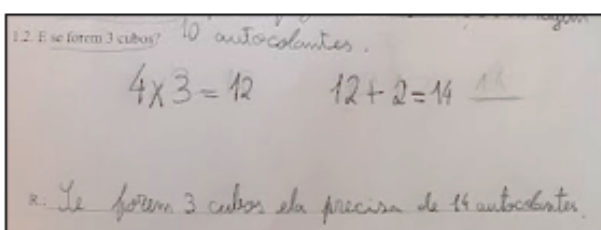 1.2. E se forem 3 cubos? 10 autocolantes.
4x3=12 12+2=14
R.: Se forem 3 cubos ela precisa de 14 autocolantes.